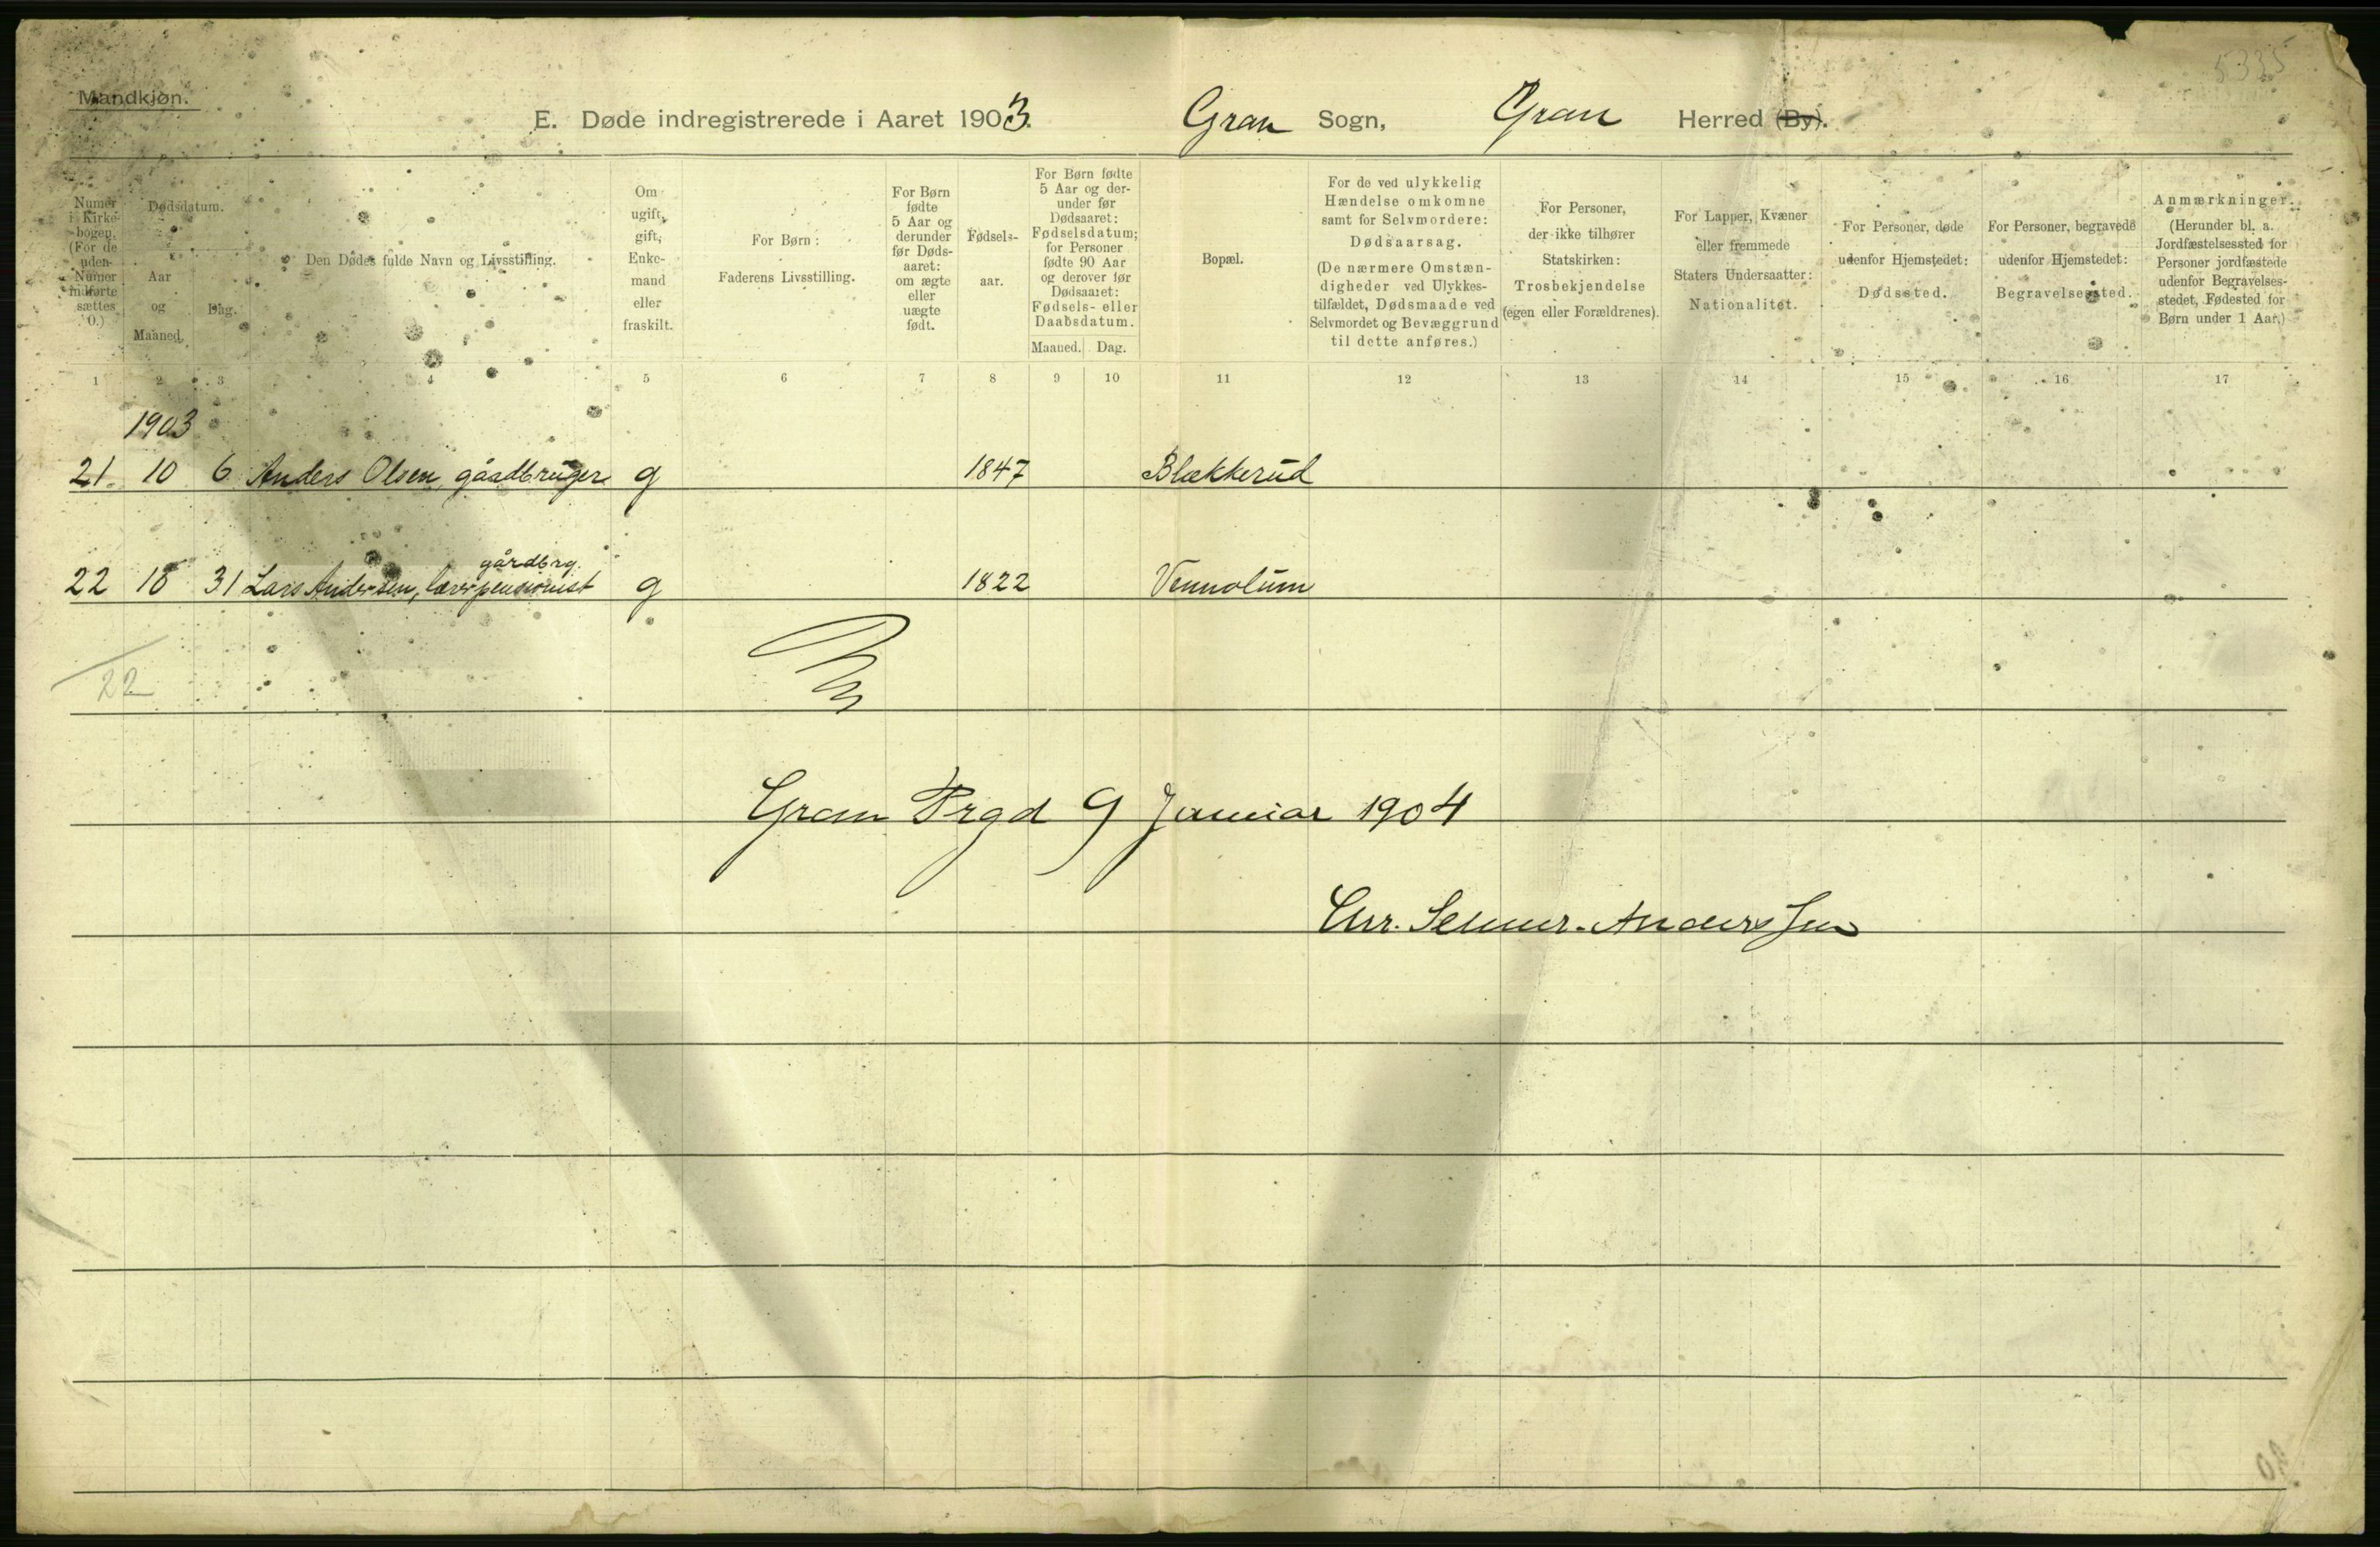 Mandkjøn.
5335
E. Døde indregistrerede i Aaret 1903. Gran Sogn, Gran Herred (By).
Numer i Kirkebogen. (For de uden Numer indførte sættes 0.)
Dødsdatum.
Aar og Maaned.
Dag.
Den Dødes fulde Navn og Livsstilling.
Om ugift, gift, Enkemand eller fraskilt.
For Børn: Faderens Livsstilling.
For Børn fødte 5 Aar og derunder før Dødsaaret: om ægte eller uægte født.
Fødselsaar.
For Børn fødte 5 Aar og derunder før Dødsaaret: Fødselsdatum; for Personer fødte 90 Aar og derover før Dødsaaret: Fødsels- eller Daabsdatum.
Maaned. Dag.
Bopæl.
For de ved ulykkelig Hændelse omkomne samt for Selvmordere: Dødsaarsag. (De nærmere Omstændigheder ved Ulykkestilfældet, Dødsmaade ved Selvmordet og Bevæggrund til dette anføres.)
For Personer, der ikke tilhører Statskirken: Trosbekjendelse (egen eller Forældrenes).
For Lapper, Kvæner eller fremmede Staters Undersaatter: Nationalitet.
For Personer, døde udenfor Hjemstedet: Dødssted.
For Personer, begravede udenfor Hjemstedet: Begravelsessted.
Anmærkninger. (Herunder bl. a. Jordfæstelsessted for Personer jordfæstede udenfor Begravelsesstedet, Fødested for Børn under 1 Aar.)
1 2 3 4 5 6 7 8 9 10 11 12 13 14 15 16 17
1903
21 10 6 Anders Olsen, gårdbruger g 1847 Blækkerud
gårdbrg.
22 10 31 Lars Andersen, lærerpensionist g 1822 Vennolum
22
Gran Prgd 9 Januar 1904
Chr. Senner-Anderssen